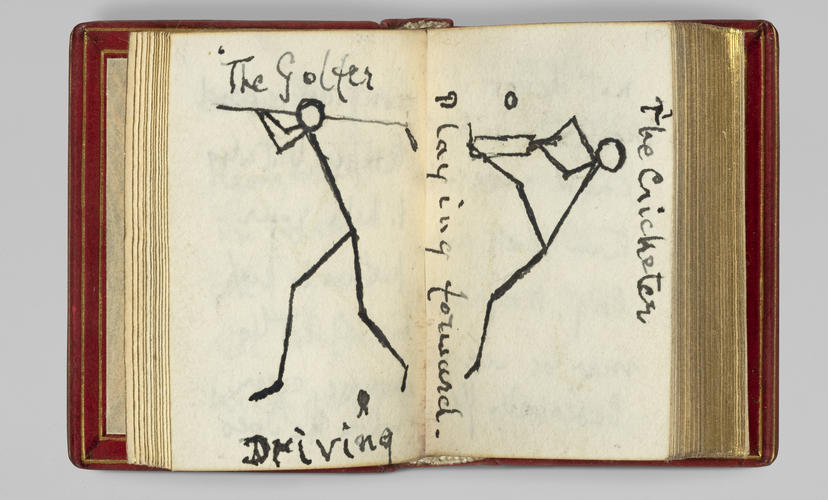 The Golfer
Driving
The Cricketer
Playing forward.